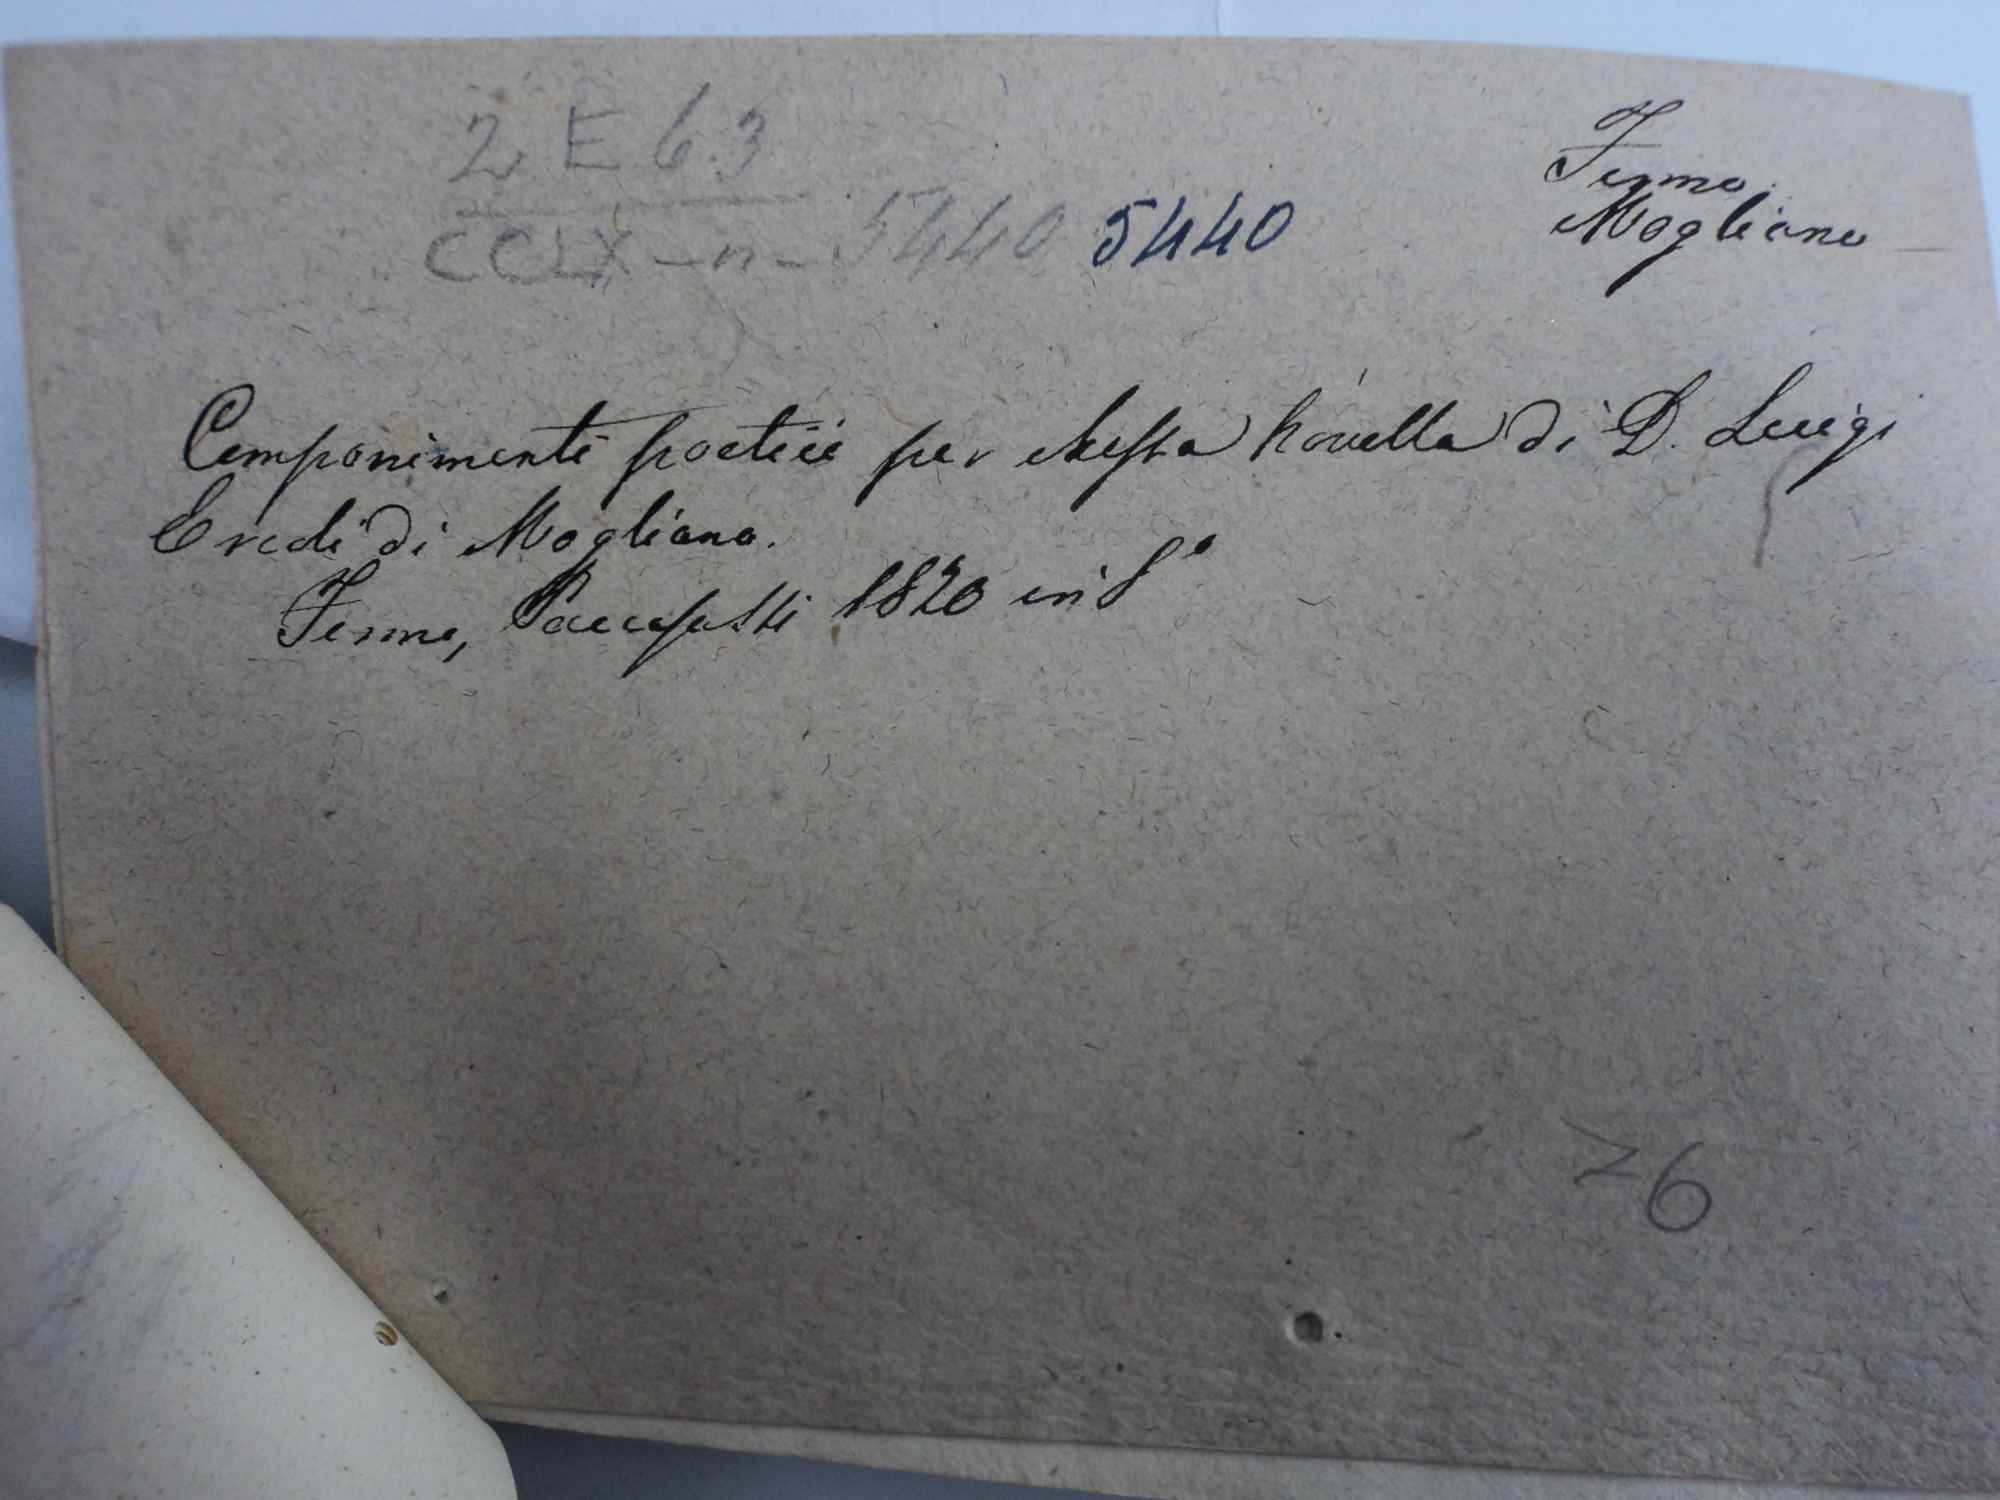 2 E 6.3
CCLX - n - 5440 5440
Fermo.
Mogliano
Componimenti poetici per Messa novella di D. Luigi
Eredi di Mogliano.
Fermo, Paccasassi 1820 in 8°
76